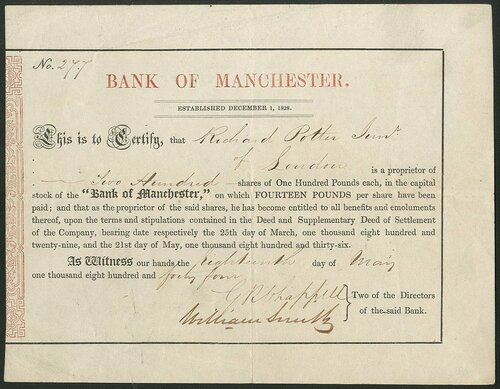 No. 277
BANK OF MANCHESTER.
ESTABLISHED DECEMBER 1, 1828.
This is to Certify, that Richard Potter Junr.
of London is a proprietor of
Two Hundred shares of One Hundred Pounds each, in the capital
stock of the "Bank of Manchester," on which FOURTEEN POUNDS per share have been
paid; and that as proprietor of the said shares, he has become entitled to all benefits and emoluments
thereof, upon the terms and stipulations contained in the Deed and Supplementary Deed of Settlement
of the Company, bearing date respectively the 25th day of March, one thousand eight hundred and
twenty-nine, and the 21st day of May, one thousand eight hundred and thirty-six.
As Witness our hands the eighteenth day of May
one thousand eight hundred and forty four
G R Chappell
William Smith
Two of the Directors
of the said Bank.